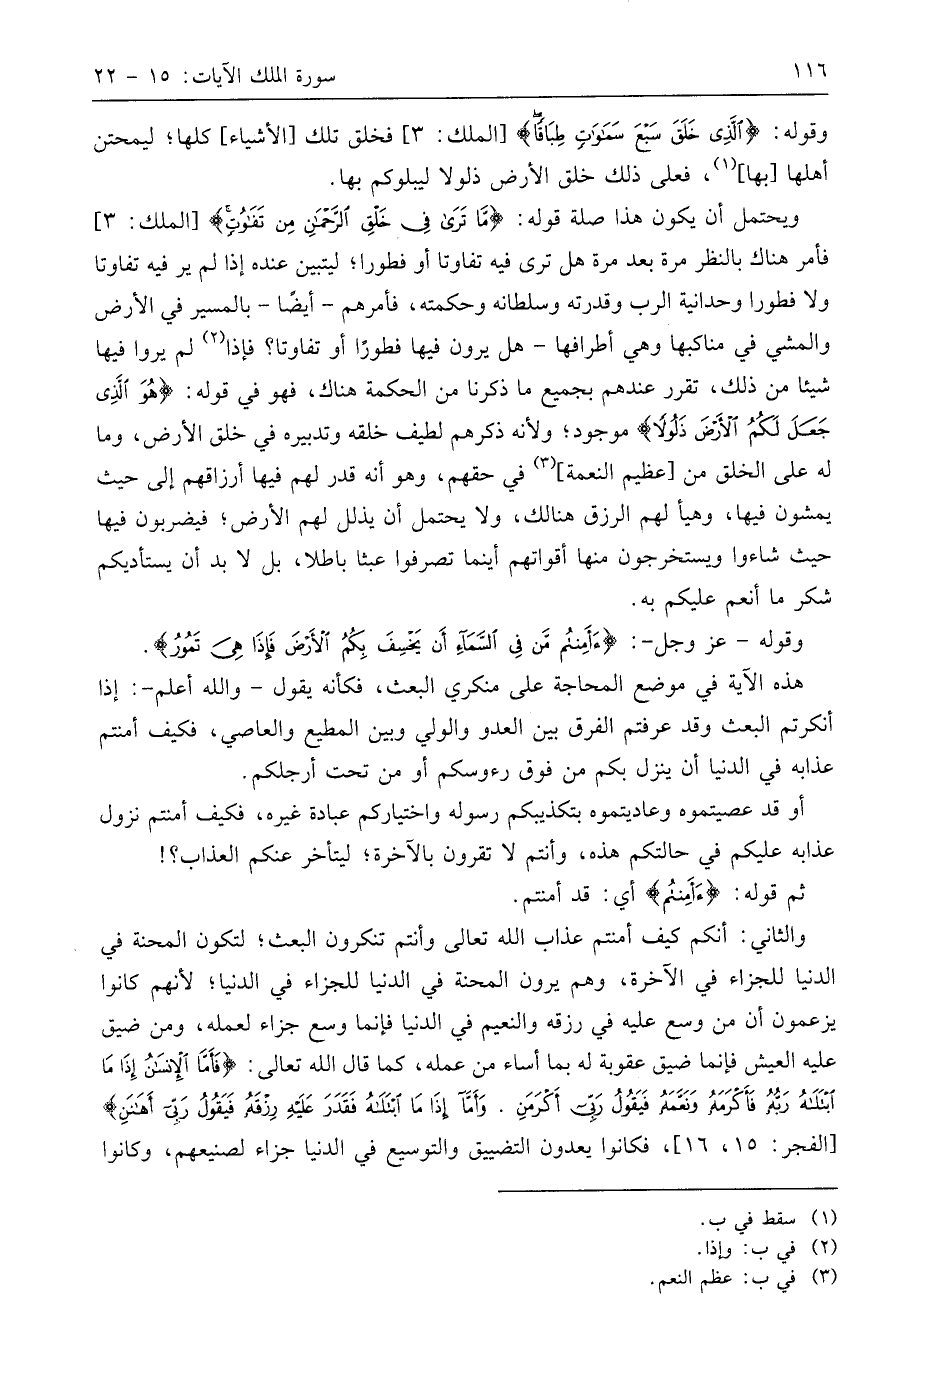 ١١٦
سورة الملك الآيات: ١٥ - ٢٢
وقوله: ﴿ٱلَّذِى خَلَقَ سَبْعَ سَمَٰوَٰتٍ طِبَاقًاۖ﴾ [الملك: ٣] فخلق تلك [الأشياء] كلها؛ ليمحتن
أهلها [بها](١)، فعلى ذلك خلق الأرض ذلولا ليبلوكم بها.
ويحتمل أن يكون هذا صلة قوله: ﴿مَّا تَرَىٰ فِى خَلْقِ ٱلرَّحْمَٰنِ مِن تَفَٰوُتٍۖ﴾ [الملك: ٣]
فأمر هناك بالنظر مرة بعد مرة هل ترى فيه تفاوتا أو فطورا؛ ليتبين عنده إذا لم ير فيه تفاوتا
ولا فطورا وحدانية الرب وقدرته وسلطانه وحكمته، فأمرهم - أيضًا - بالمسير في الأرض
والمشي في مناكبها وهي أطرافها - هل يرون فيها فطورًا أو تفاوتا؟ فإذا(٢) لم يروا فيها
شيئا من ذلك، تقرر عندهم بجميع ما ذكرنا من الحكمة هناك، فهو في قوله: ﴿هُوَ ٱلَّذِى
جَعَلَ لَكُمُ ٱلْأَرْضَ ذَلُولًا﴾ موجود؛ ولأنه ذكرهم لطيف خلقه وتدبيره في خلق الأرض، وما
له على الخلق من [عظيم النعمة](٣) في حقهم، وهو أنه قدر لهم فيها أرزاقهم إلى حيث
يمشون فيها، وهيأ لهم الرزق هنالك، ولا يحتمل أن يذلل لهم الأرض؛ فيضربون فيها
حيث شاءوا ويستخرجون منها أقواتهم أينما تصرفوا عبثا باطلا، بل لا بد أن يستأديكم
شكر ما أنعم عليكم به.
وقوله - عز وجل-: ﴿ءَأَمِنتُم مَّن فِى ٱلسَّمَآءِ أَن يَخْسِفَ بِكُمُ ٱلْأَرْضَ فَإِذَا هِىَ تَمُورُ﴾.
هذه الآية في موضع المحاجة على منكري البعث، فكأنه يقول - والله أعلم-: إذا
أنكرتم البعث وقد عرفتم الفرق بين العدو والولي وبين المطيع والعاصي، فكيف أمنتم
عذابه في الدنيا أن ينزل بكم من فوق رءوسكم أو من تحت أرجلكم.
أو قد عصيتموه وعاديتموه بتكذيبكم رسوله واختياركم عبادة غيره، فكيف أمنتم نزول
عذابه عليكم في حالتكم هذه، وأنتم لا تقرون بالآخرة؛ ليتأخر عنكم العذاب؟!
ثم قوله: ﴿ءَأَمِنتُم﴾ أي: قد أمنتم.
والثاني: أنكم كيف أمنتم عذاب الله تعالى وأنتم تنكرون البعث؛ لتكون المحنة في
الدنيا للجزاء في الآخرة، وهم يرون المحنة في الدنيا للجزاء في الدنيا؛ لأنهم كانوا
يزعمون أن من وسع عليه في رزقه والنعيم في الدنيا فإنما وسع جزاء لعمله، ومن ضيق
عليه العيش فإنما ضيق عقوبة له بما أساء من عمله، كما قال الله تعالى: ﴿فَأَمَّا ٱلْإِنسَٰنُ إِذَا مَا
ٱبْتَلَىٰهُ رَبُّهُۥ فَأَكْرَمَهُۥ وَنَعَّمَهُۥ فَيَقُولُ رَبِّىٓ أَكْرَمَنِ . وَأَمَّآ إِذَا مَا ٱبْتَلَىٰهُ فَقَدَرَ عَلَيْهِ رِزْقَهُۥ فَيَقُولُ رَبِّىٓ أَهَٰنَنِ﴾
[الفجر: ١٥، ١٦]، فكانوا يعدون التضييق والتوسيع في الدنيا جزاء لصنيعهم، وكانوا
(١) سقط في ب.
(٢) في ب: وإذا.
(٣) في ب: عظم النعم.